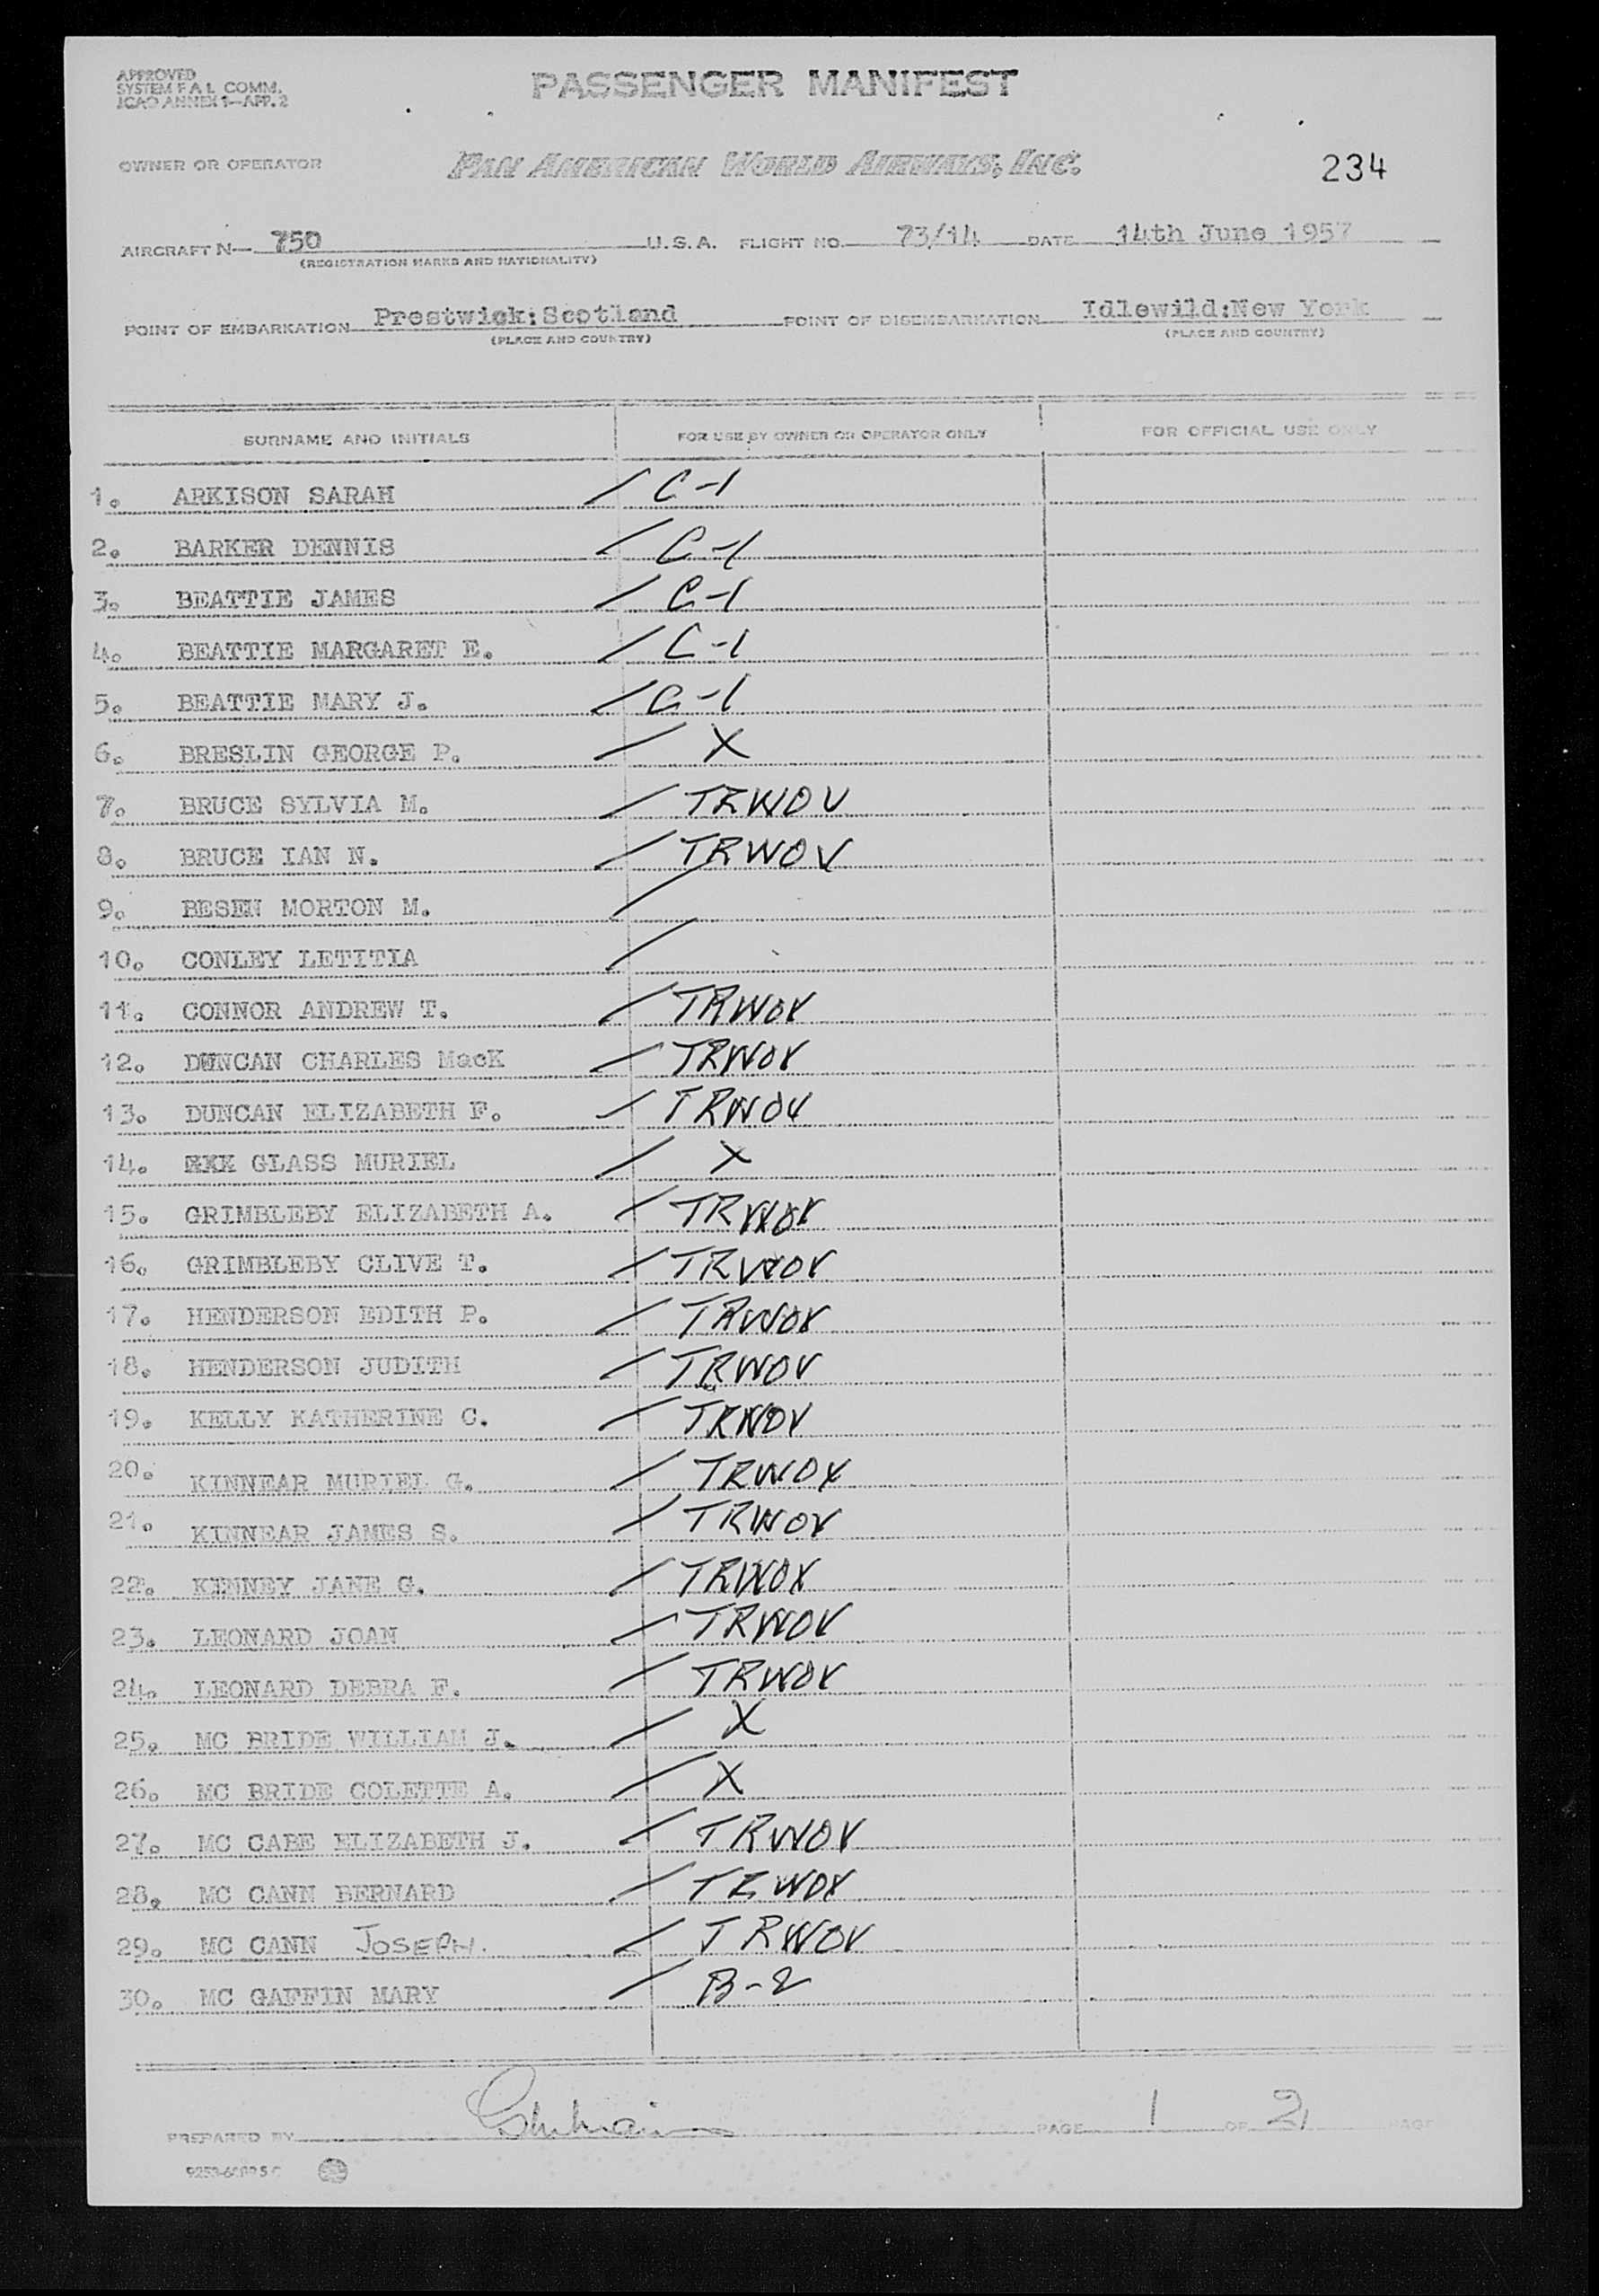 APPROVED
SYSTEM F A L COMM.
ICAO ANNEX 1—APP. 2
PASSENGER MANIFEST
OWNER OR OPERATOR PAN AMERICAN WORLD AIRWAYS, INC. 234
AIRCRAFT N— 750 U. S. A. FLIGHT NO. 73/14 DATE 14th June 1957
(REGISTRATION MARKS AND NATIONALITY)
POINT OF EMBARKATION Prestwick:Scotland POINT OF DISEMBARKATION Idlewild:New York
(PLACE AND COUNTRY) (PLACE AND COUNTRY)
SURNAME AND INITIALS FOR USE BY OWNER OR OPERATOR ONLY FOR OFFICIAL USE ONLY
1. ARKISON SARAH / C-1
2. BARKER DENNIS / C-1
3. BEATTIE JAMES / C-1
4. BEATTIE MARGARET E. / C-1
5. BEATTIE MARY J. / C-1
6. BRESLIN GEORGE P. / X
7. BRUCE SYLVIA M. / TRWOV
8. BRUCE IAN N. / TRWOV
9. BESEN MORTON M. /
10. CONLEY LETITIA /
11. CONNOR ANDREW T. / TRWOV
12. DUNCAN CHARLES MacK / TRWOV
13. DUNCAN ELIZABETH F. / TRWOV
14. XXX GLASS MURIEL / X
15. GRIMBLEBY ELIZABETH A. / TRWOV
16. GRIMBLEBY CLIVE T. / TRWOV
17. HENDERSON EDITH P. / TRWOV
18. HENDERSON JUDITH / TRWOV
19. KELLY KATHERINE C. / TRWOV
20. KINNEAR MURIEL G. / TRWOV
21. KINNEAR JAMES S. / TRWOV
22. KENNEY JANE G. / TRWOV
23. LEONARD JOAN / TRWOV
24. LEONARD DEBRA F. / TRWOV
25. MC BRIDE WILLIAM J. / X
26. MC BRIDE COLETTE A. / X
27. MC CABE ELIZABETH J. / TRWOV
28. MC CANN BERNARD / TRWOV
29. MC CANN JOSEPH. / TRWOV
30. MC GAFFIN MARY / B-2
PREPARED BY PAGE 1 OF 2 PAGE